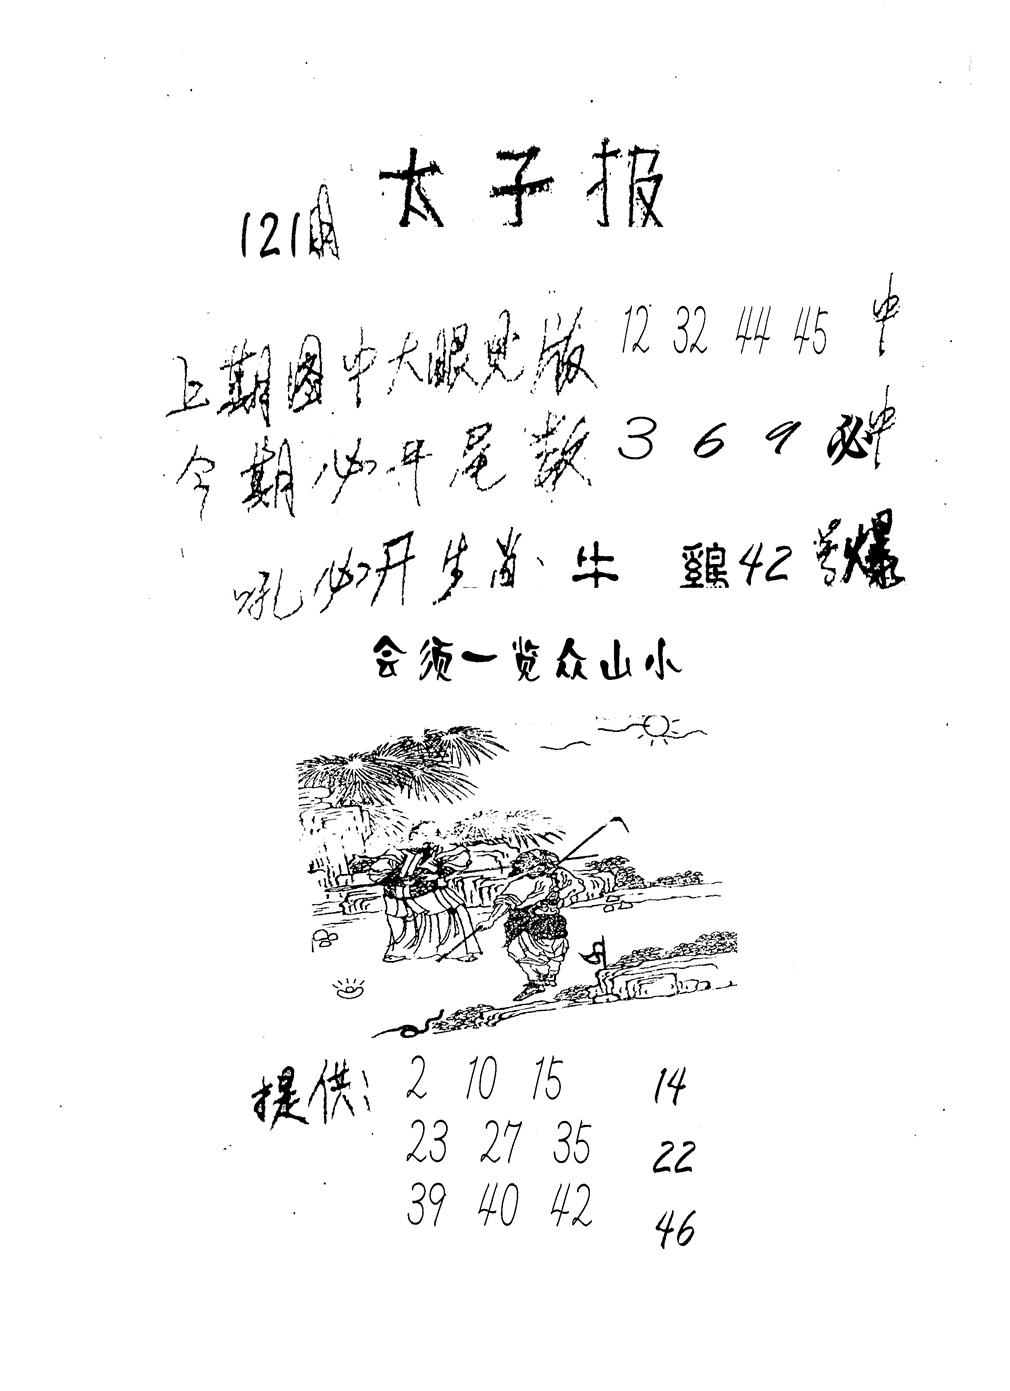 太子报
121期
上期图中大眼见版 12 32 44 45 中
今期必开尾数 3 6 9 必中
吼必开生肖: 牛 鷄 42 号爆
会须一览众山小
提供: 2 10 15 14
23 27 35 22
39 40 42 46